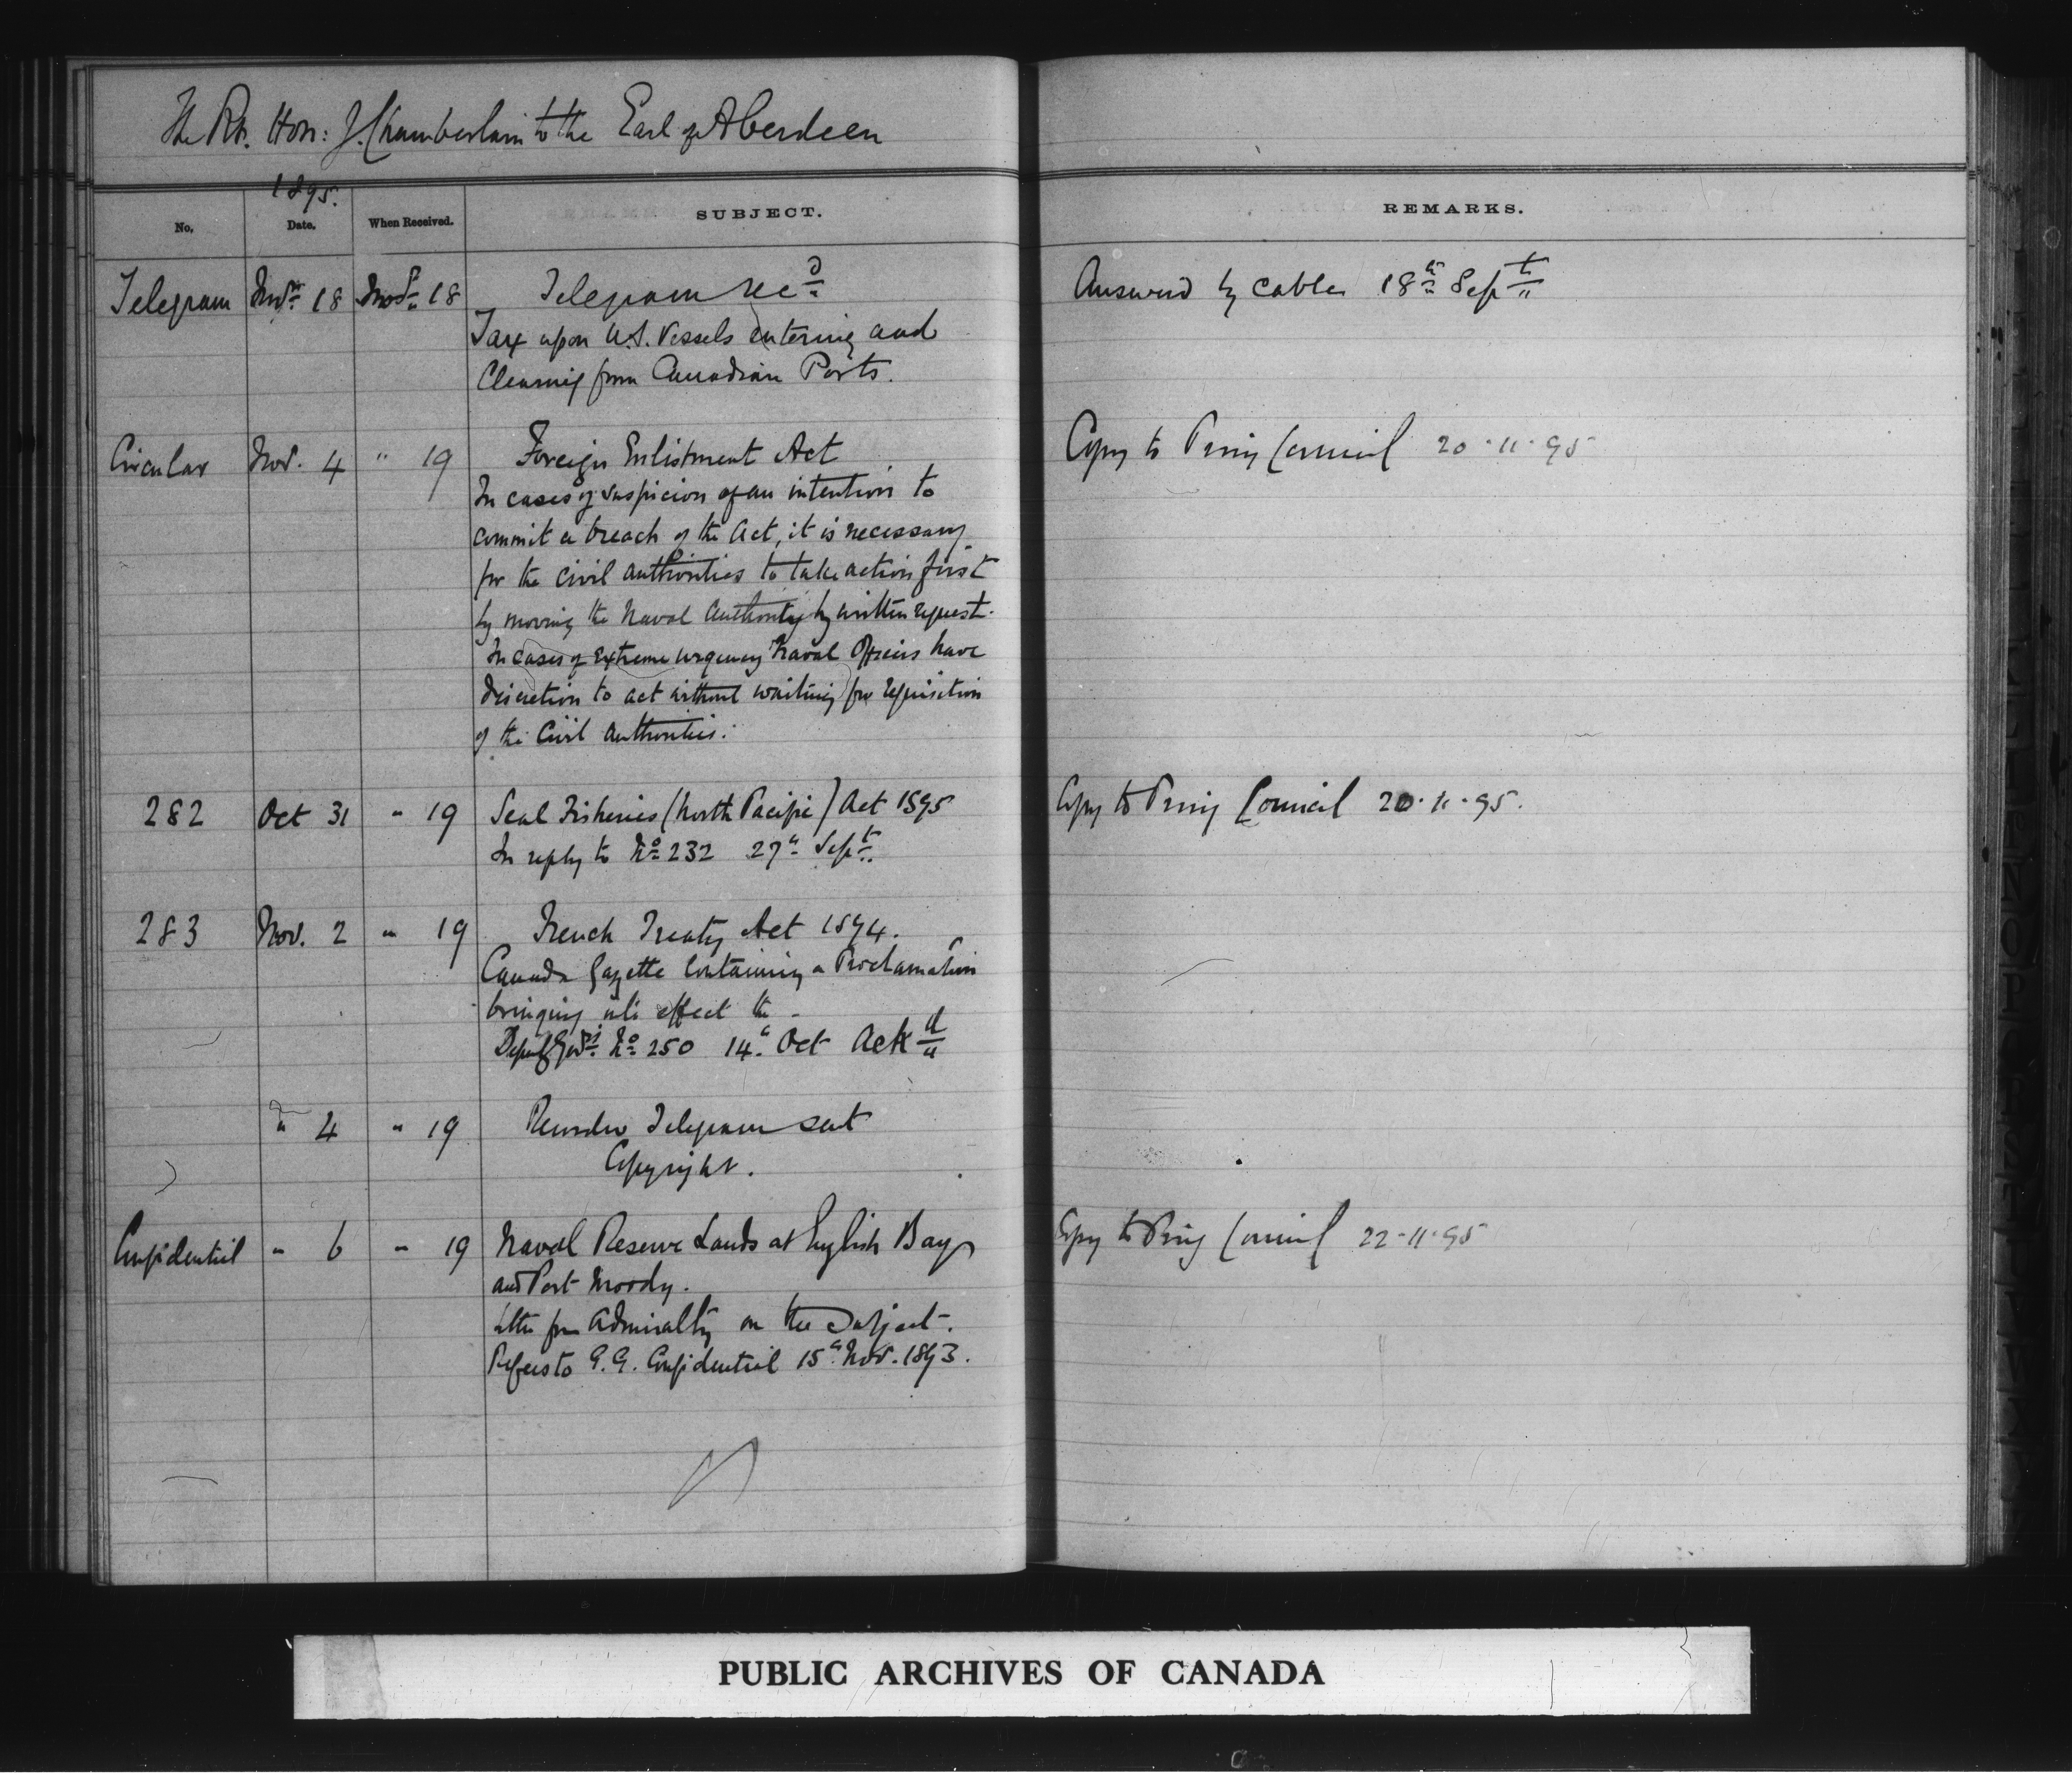 The Rt. Hon: J. Chamberlain to the Earl of Aberdeen
1895.
No. Date. When Received. SUBJECT. REMARKS.
Telegram Novr 18 Novr 18 Telegram recd Answered by cable 18th Sept
Tax upon U.S. Vessels entering and
Clearing from Canadian Ports.
Circular Nov. 4 " 19 Foreign Enlistment Act Copy to Privy Council 20.11.95
In cases of suspicion of an intention to
commit a breach of the Act, it is necessary
for the Civil authorities to take action first
by moving the Naval Authority by written request.
In cases of extreme urgency Naval Officers have
discretion to act without waiting for requisition
of the Civil Authorities.
282 Oct 31 " 19 Seal Fisheries (North Pacific) Act 1895 Copy to Privy Council 20.11.95.
In reply to No 232 27th Sept.
283 Nov. 2 " 19 French Treaty Act 1894.
Canada Gazette containing a Proclamation
bringing into effect the -
Deputy Govrs No 250 14th Oct Ackd
" 4 " 19 Telegram sent
Copyright.
Confidential " 6 " 19 Naval Reserve Lands at English Bay Copy to Privy Council 22-11-95
and Port Moody.
Letter from Admiralty on the Subject.
Refers to G.G. Confidential 15th Nov. 1893.
PUBLIC ARCHIVES OF CANADA